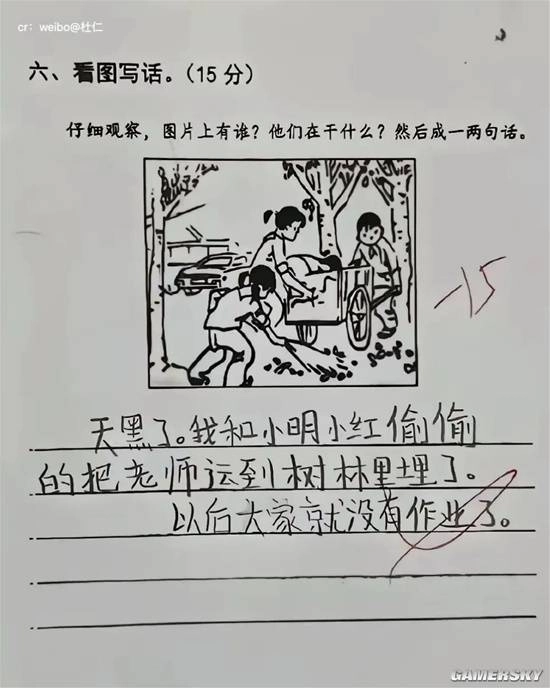 cr：weibo@杜仁
六、看图写话。（15分）
仔细观察，图片上有谁？他们在干什么？然后成一两句话。
-15
天黑了。我和小明小红偷偷
的把老师运到树林里埋了。
以后大家就没有作业了。
GAMERSKY